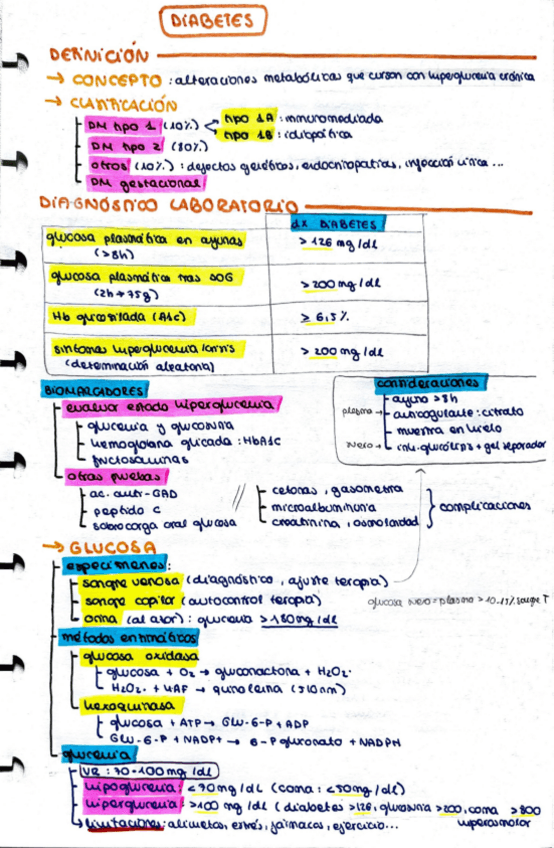 DIABETES
DEFINICIÓN
→ CONCEPTO : alteraciones metabólicas que cursan con hiperglucemia crónica
→ CLASIFICACIÓN
DM tipo 1 (10%) < tipo 1A : inmunomediada
tipo 1B : idiopática
DM tipo 2 (80%)
otros (10%) : defectos genéticos, endocrinopatías, infección vírica ...
DM gestacional
DIAGNÓSTICO LABORATORIO
dx DIABETES
glucosa plasmática en ayunas (>8h) >126 mg/dl
glucosa plasmática tras SOG (2h + 75g) >200 mg/dl
Hb glicosilada (A1c) ≥ 6,5%
síntomas hiperglucemia (determinación aleatoria) >200 mg/dl
BIOMARCADORES
evaluar estado hiperglucemia
glucemia y glucosuria
hemoglobina glicada : HbA1c
fructosaminas
otras pruebas
ac. anti-GAD
peptido C
sobrecarga oral glucosa
// cetonas, gasometría
microalbuminuria
creatinina, osmolaridad
} complicaciones
consideraciones
ayuno >8h
plasma → anticoagulante : citrato
muestra en hielo
suero → inh. glucólisis + gel separador
→ GLUCOSA
especímenes :
sangre venosa (diagnóstico, ajuste terapia)
sangre capilar (autocontrol terapia)
orina (al azar) : glucemia >180 mg/dl
glucosa suero = plasma > 10-15% sangre T
métodos enzimáticos
glucosa oxidasa
glucosa + O₂ → gluconactona + H₂O₂.
H₂O₂. + 4AF → quinoleina (510nm)
hexoquinasa
glucosa + ATP → Glu-6-P + ADP
Glu-6-P + NADP+ → 6-P gluconato + NADPH
glucemia
VR : 70-100 mg/dl
hipoglucemia <70 mg/dl (coma : <50mg/dl)
hiperglucemia >100 mg/dl (diabetes >126, glucosuria >200, coma >800
hiperosmolar
limitaciones : alimentos, estrés, fármacos, ejercicio...